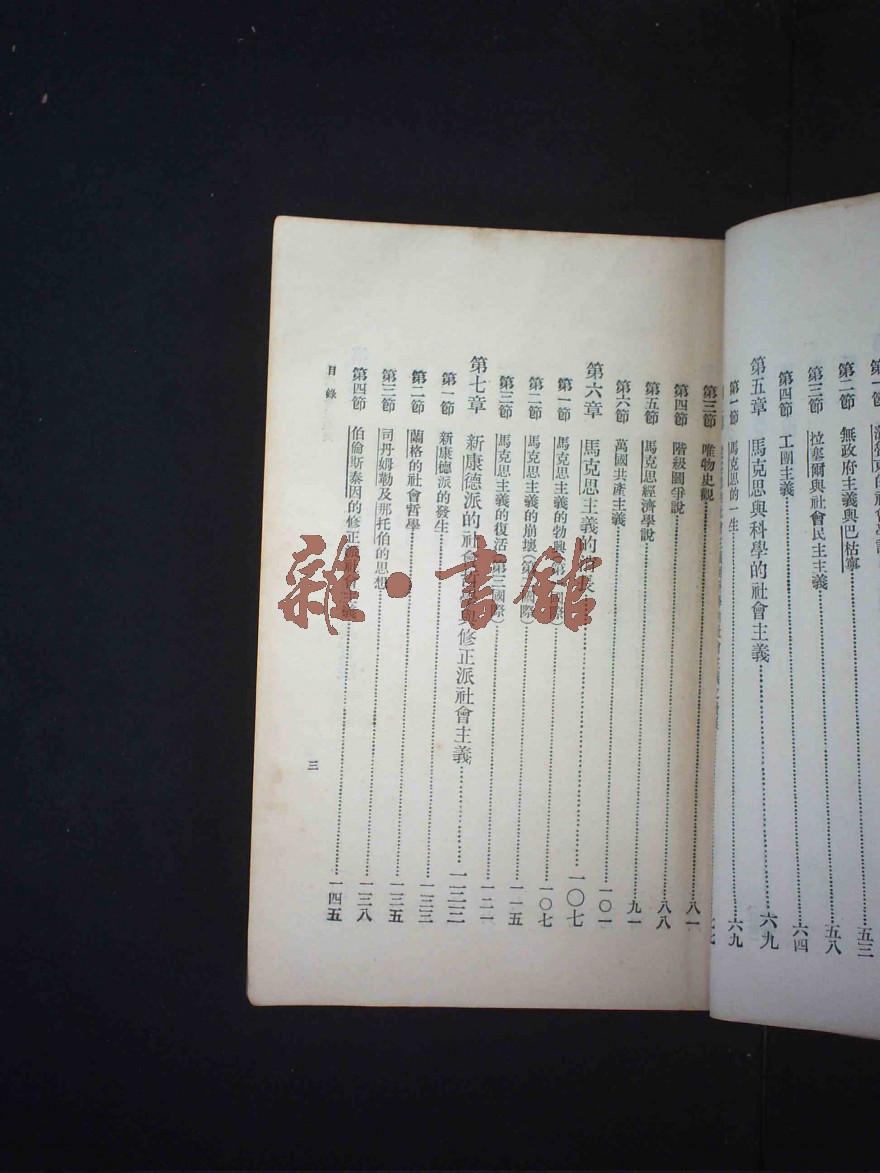 第二節 無政府主義與巴枯寧 五八
第三節 拉塞爾與社會民主主義
第四節 工團主義 六四
第五章 馬克思與科學的社會主義 六九
第一節 馬克思的一生 六九
第三節 唯物史觀 八一
第四節 階級鬪爭說 八八
第五節 馬克思經濟學說 九一
第六節 萬國共產主義 一〇一
第六章 馬克思主義的消長 一〇七
第一節 馬克思主義的勃興(第一國際) 一〇七
第二節 馬克思主義的崩壞(第二國際) 一一五
第三節 馬克思主義的復活(第三國際) 一二一
第七章 新康德派的社會哲學與修正派社會主義 一三三
第一節 新康德派的發生
第二節 蘭格的社會哲學 一三三
第三節 司丹姆勒及那托伯的思想 一三五
第四節 伯倫斯泰因的修正派社會主義 一三八
一四五
目錄
三
雜·書館